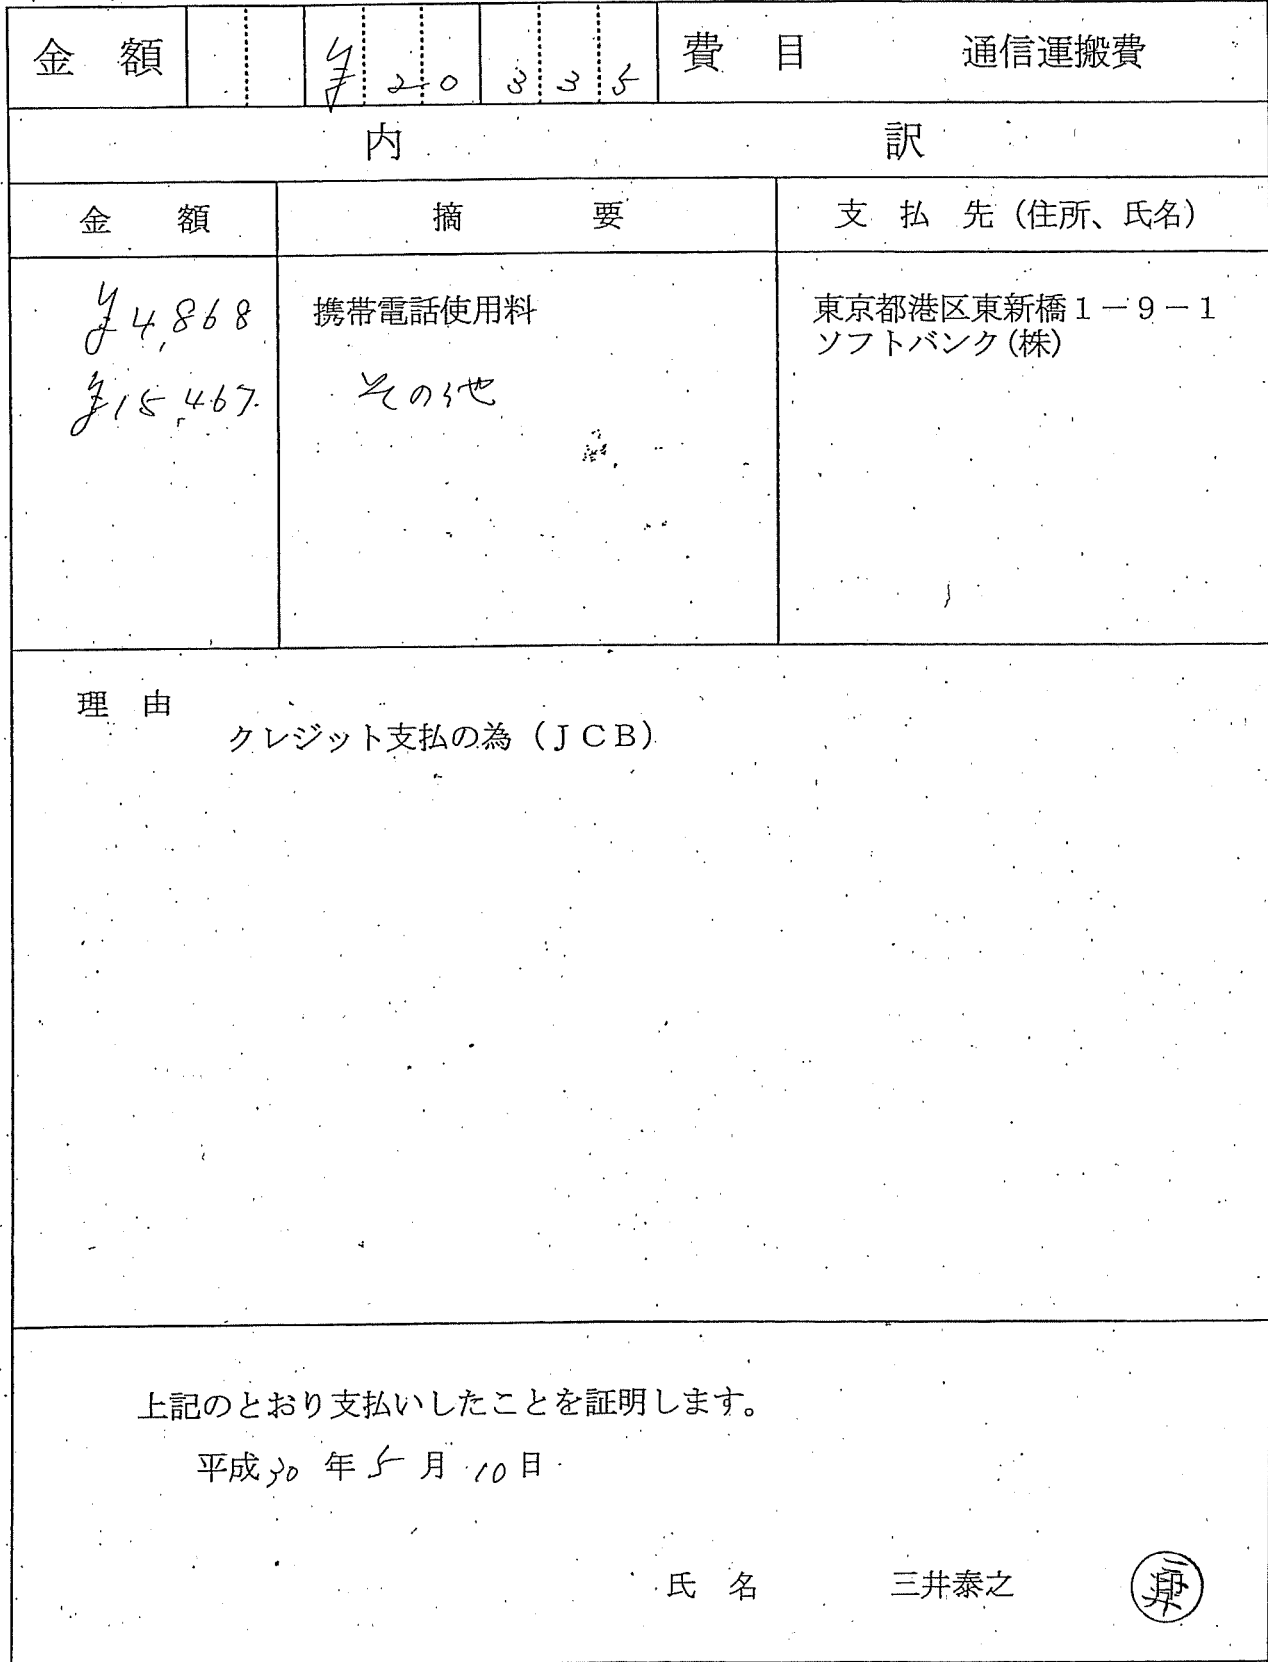 金 額 ¥20335 費 目 通信運搬費
内 訳
金 額 摘 要 支 払 先（住所、氏名）
¥4,868 携帯電話使用料 東京都港区東新橋１－９－１
ソフトバンク(株)
¥15,467. その他
理 由
クレジット支払の為（ＪＣＢ）
上記のとおり支払いしたことを証明します。
平成30年5月10日
氏 名 三井泰之